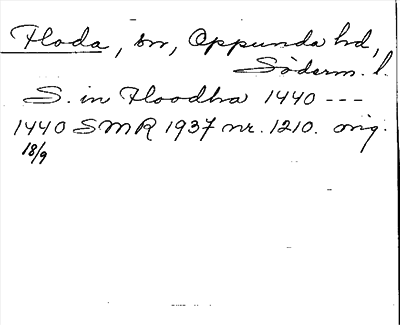 Floda, sn, Oppunda hd,
Söderm. l.
S. in Floodha 1440 ---
1440 SMR 1937 nr. 1210. orig.
18/9